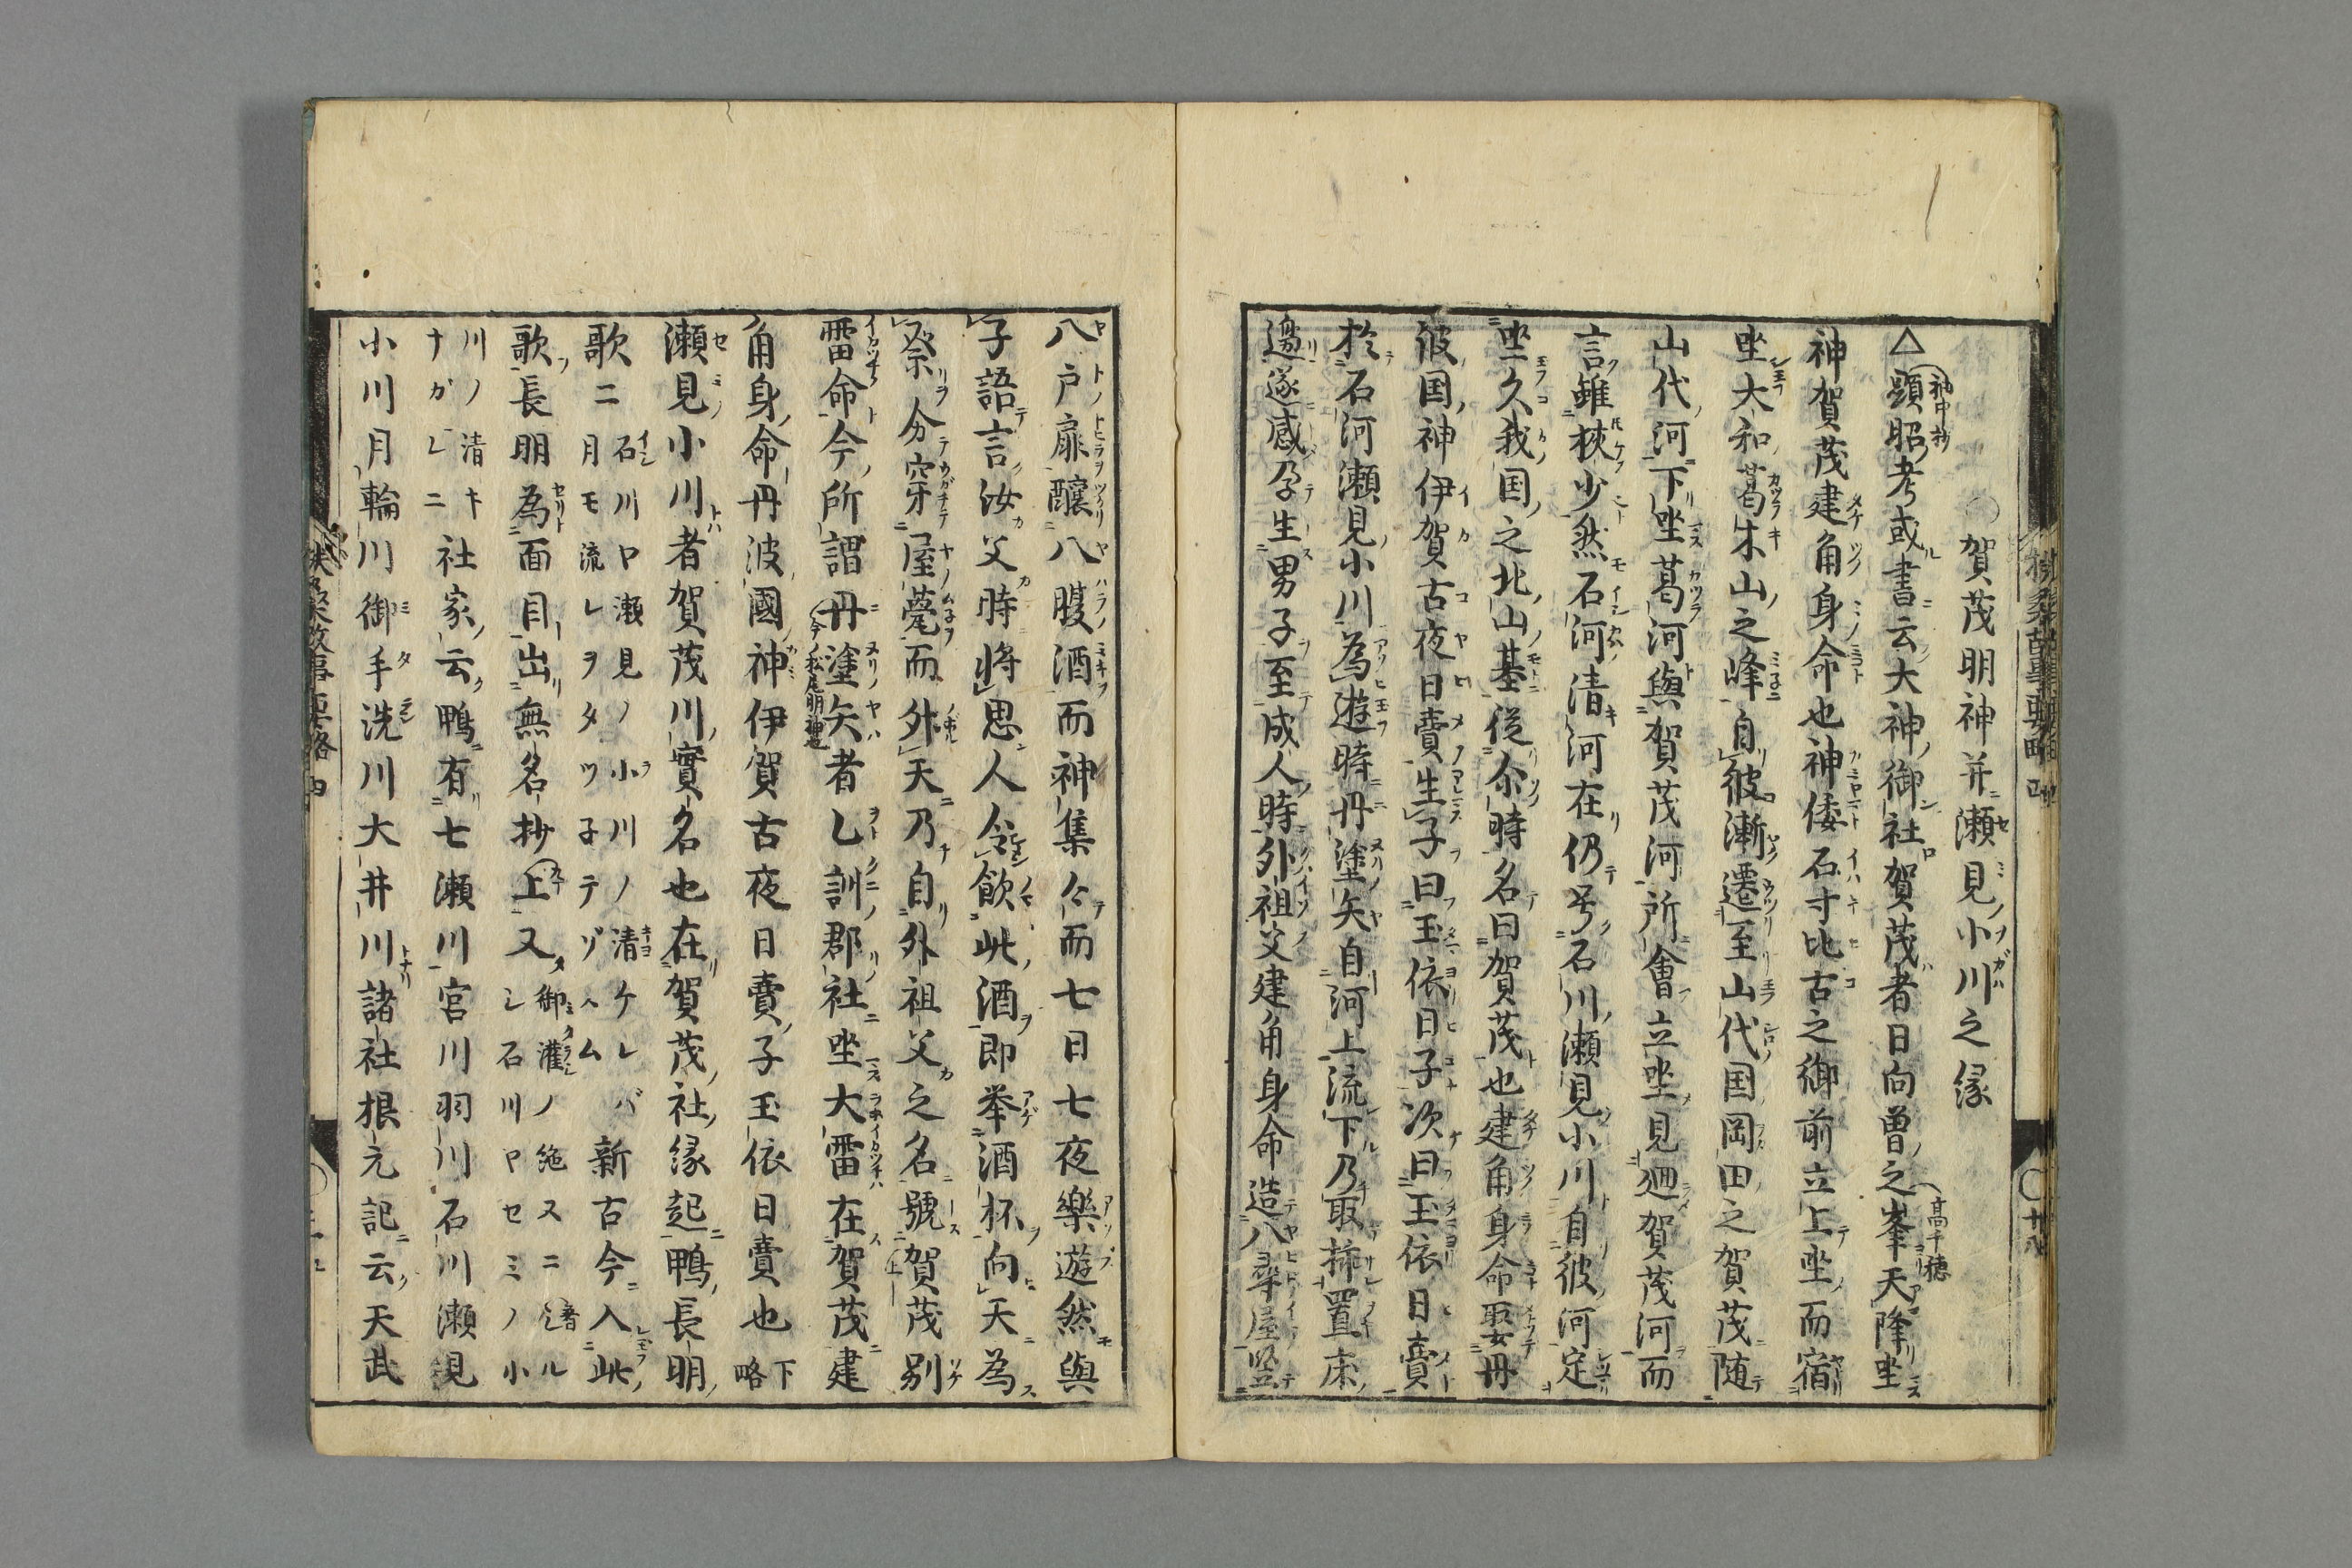 賀茂明神并瀬見小川之縁
△顕昭考或書云大神御社賀茂者日向曽之峯天降坐
神賀茂建角身命也神倭石寸比古之御前立上坐而宿
坐大和葛木山之峰自彼漸遷至山代国岡田之賀茂随
山代河下坐葛河與賀茂河所會立坐見廻賀茂河而
言雖狭少然石河清河在仍号石川瀬見小川自彼河定
坐久我国之北山基従尓時名曰賀茂也建角身命娶丹
彼国神伊賀古夜日賣生子曰玉依日子次曰玉依日賣
於石河瀬見小川為遊時丹塗矢自河上流下乃取挿置床
邊遂感孕生男子至成人時外祖父建角身命造八尋屋竪
八戸扉釀八腹酒而神集々而七日七夜樂遊然與
子語言汝父時將思人令飲此酒即挙酒杯向天為
祭分穿屋甍而外天乃自外祖父之名號賀茂別
雷命今所謂丹塗矢者乙訓郡社坐大雷在賀茂建
角身命丹波國神伊賀古夜日賣子玉依日賣也下略
瀬見小川者賀茂川實名也在賀茂社縁起鴨長明
歌ニ石川ヤ瀬見ノ小川ノ清ケレバ月モ流レヲタツ子テゾスム新古今入此
歌長明為面目出無名抄上又御灌ノ絶スニゴルナシ石川ヤセミノ小
川ノ清キナガレニ社家云鴨有七瀬川宮川羽川石川瀬見
小川月輪川御手洗川大井川諸社根元記云天武